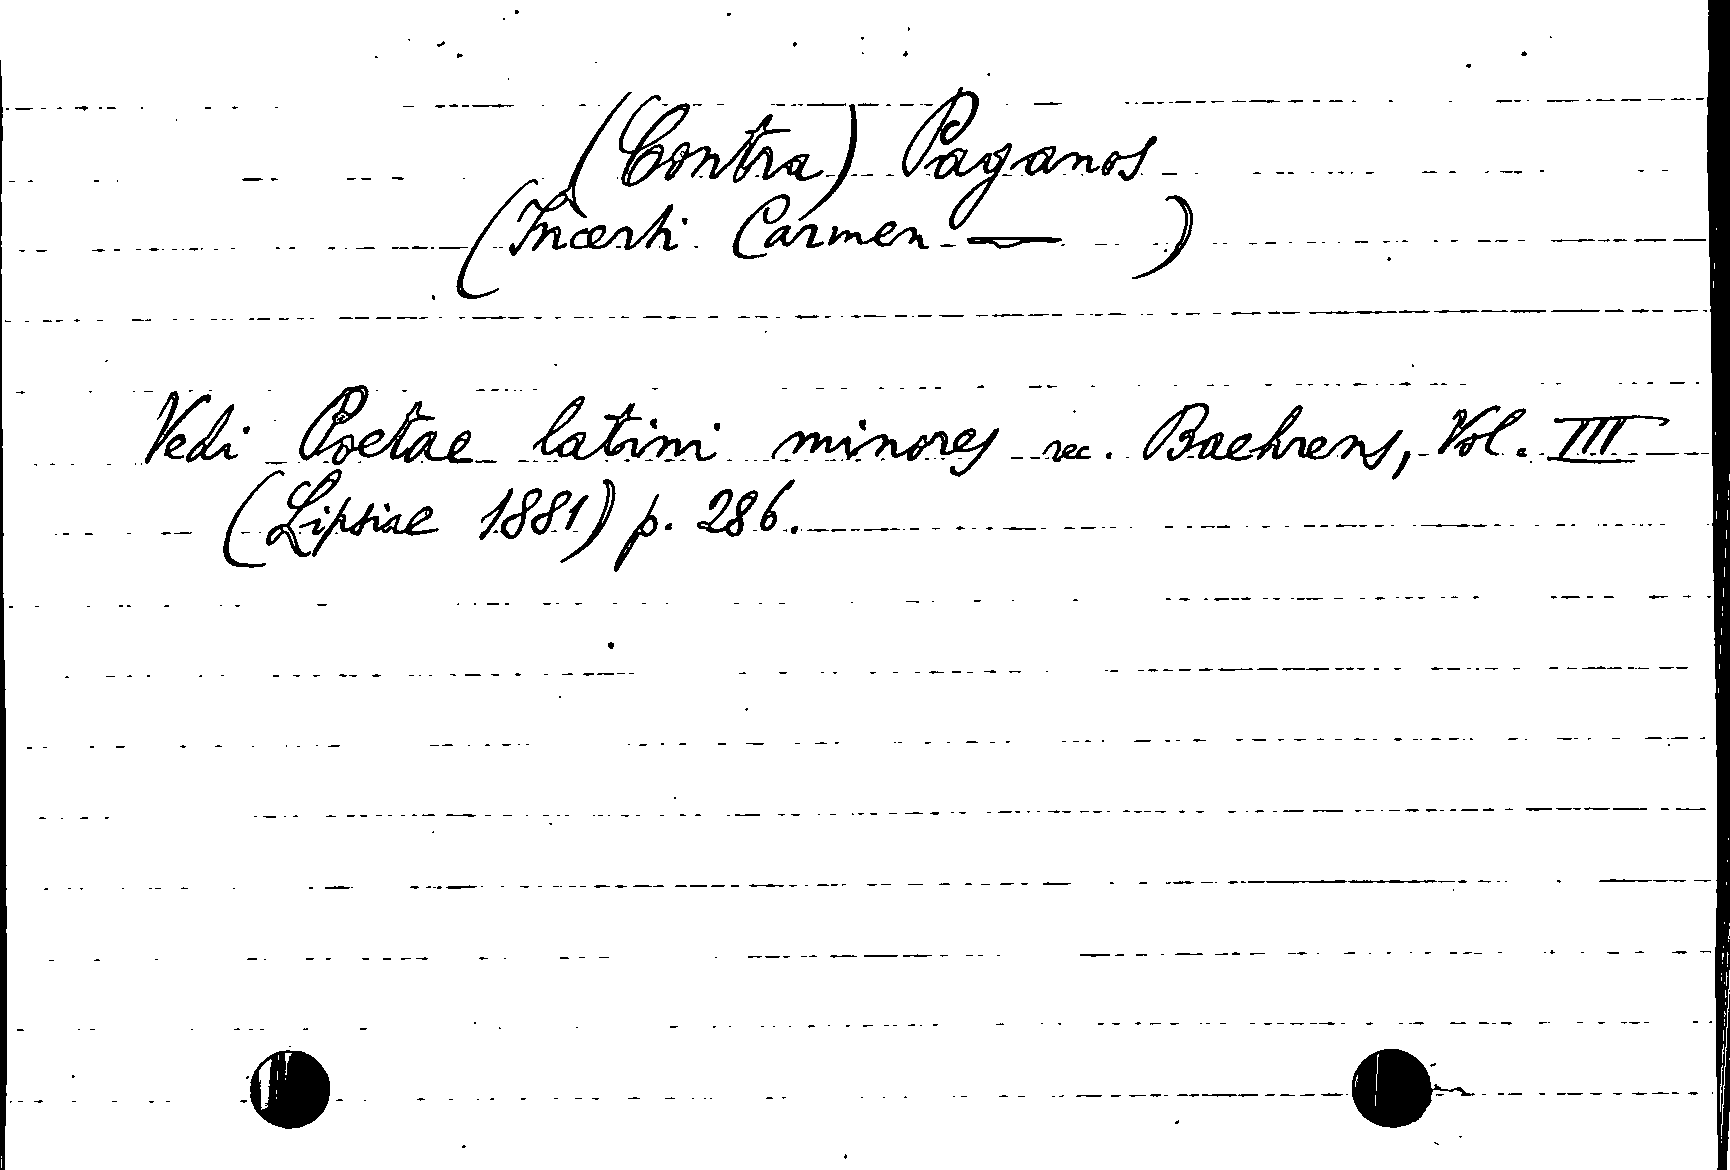 (Contra) Paganos
(Incerti Carmen — )
Vedi Poetae latini minores rec. Baehrens, Vol. III
(Lipsiae 1881) p. 286.